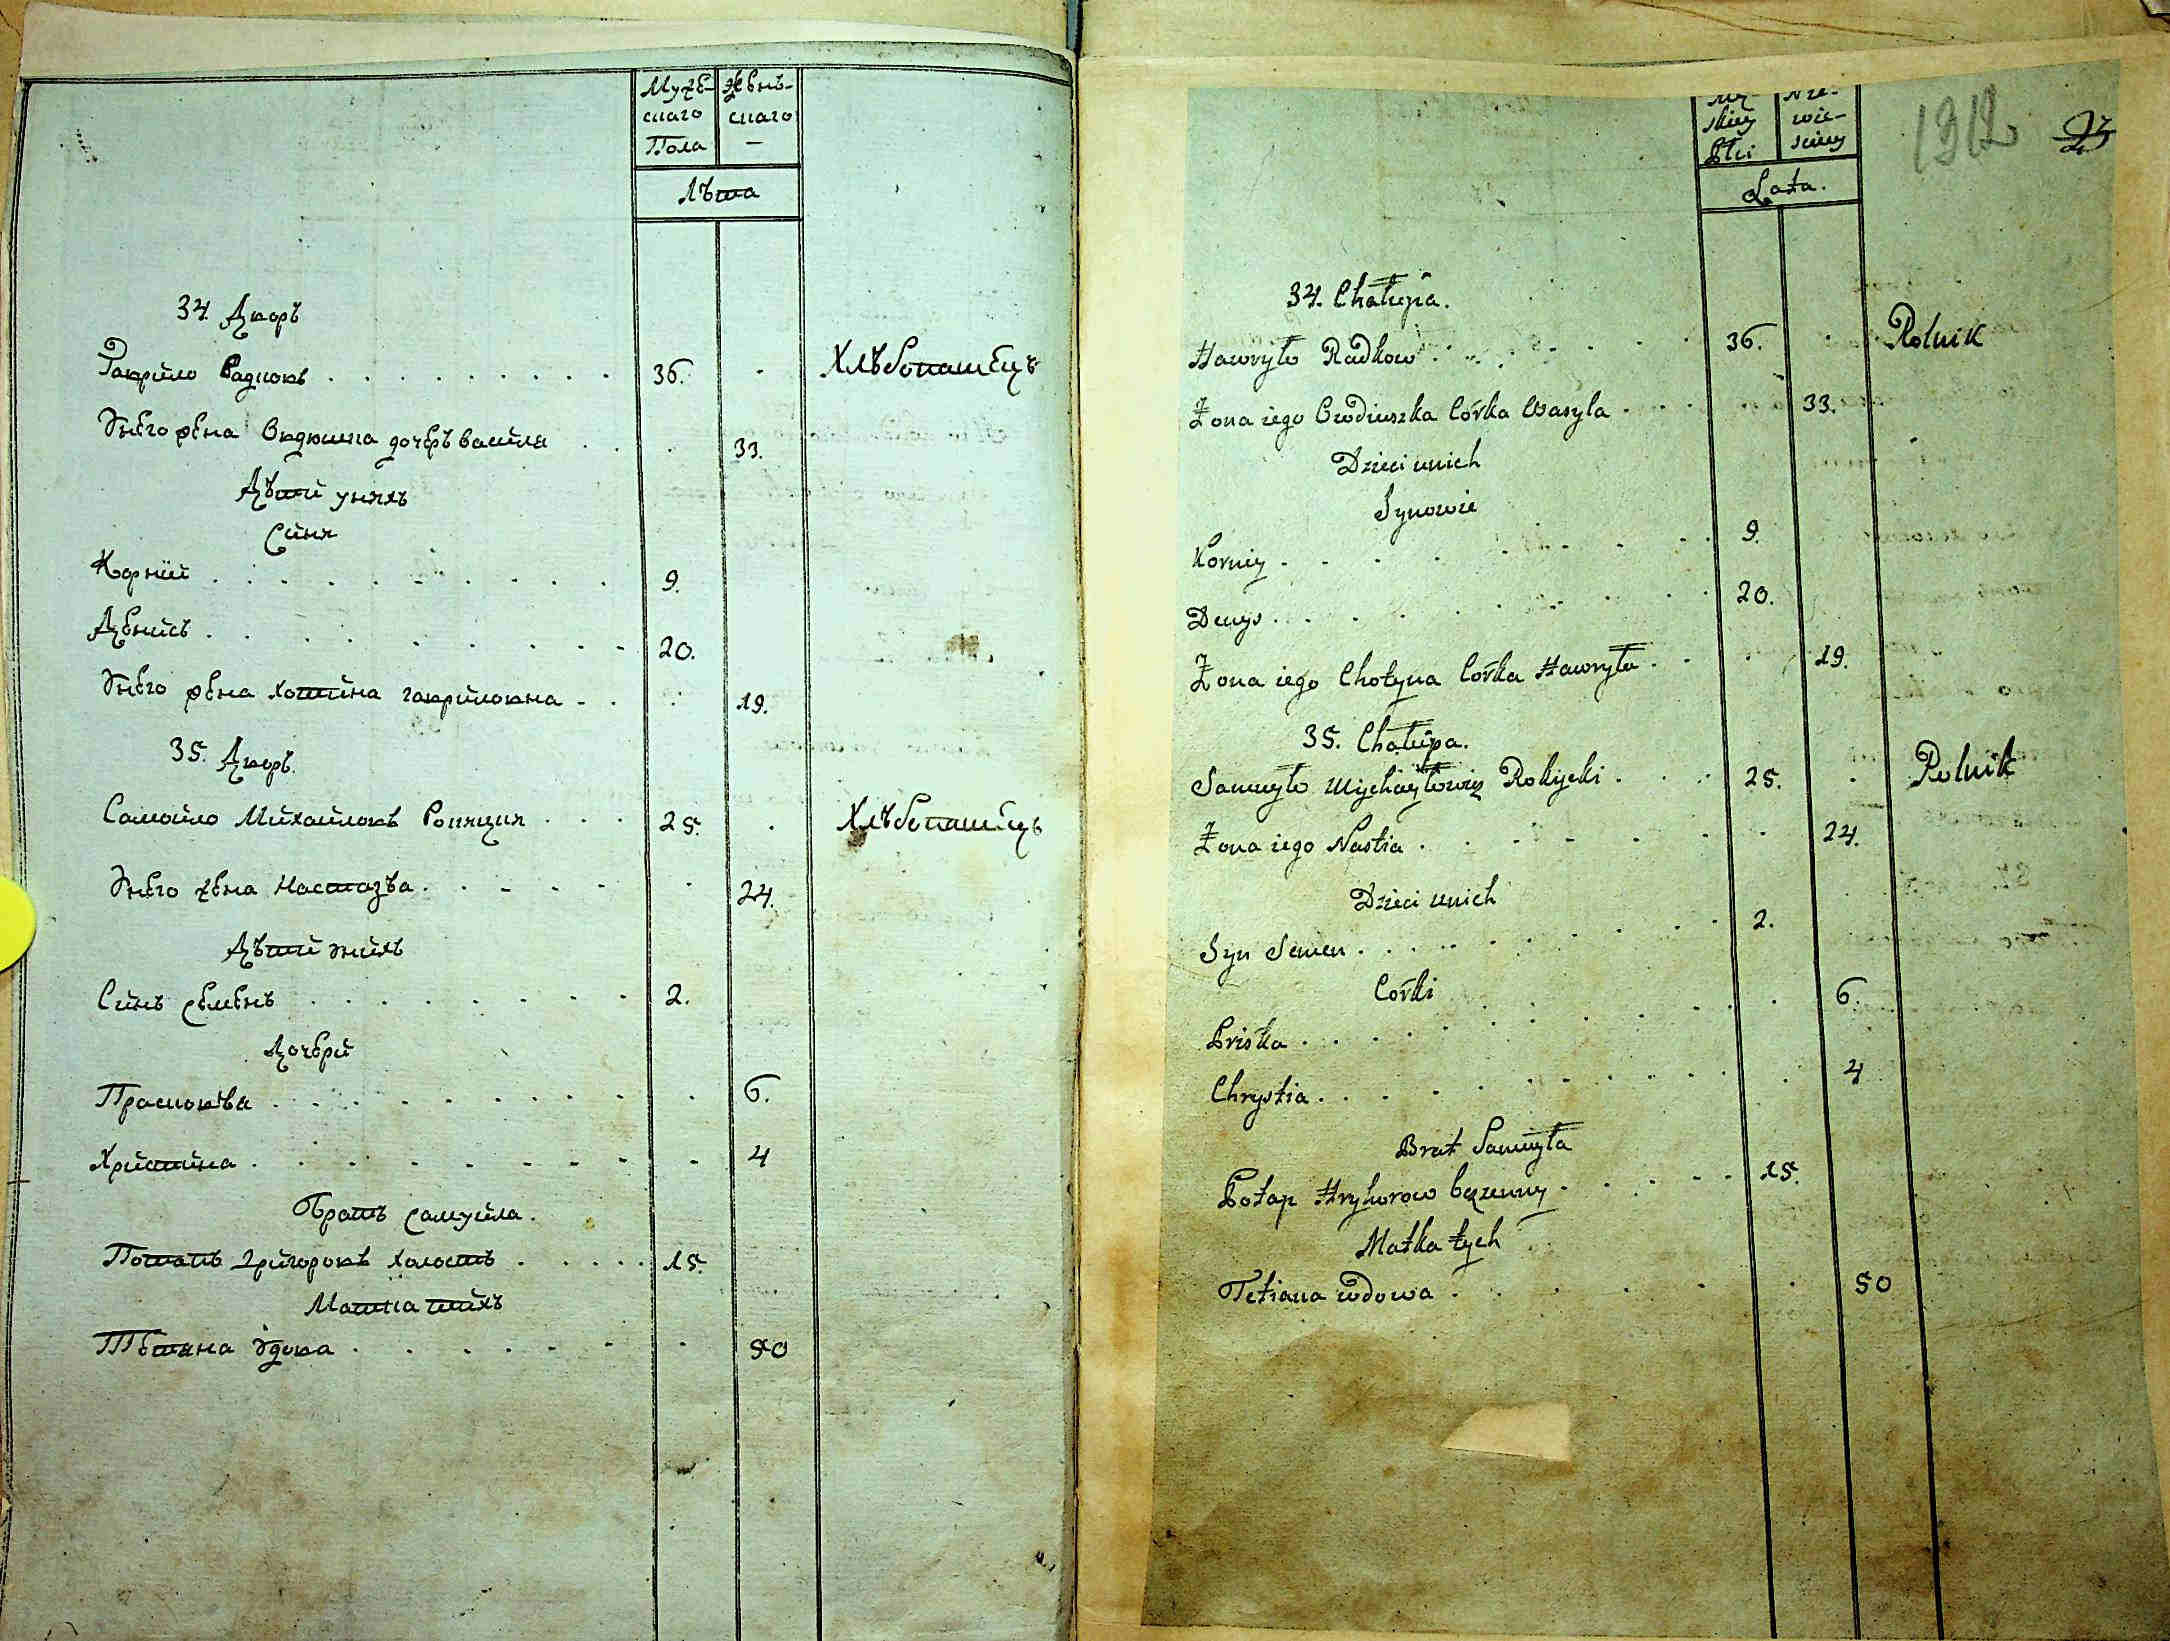 Муже- Женъ-
скаго скаго
Пола —
Лѣта
34. Дворъ
Гаврило Радковъ . . . . . . . . . 36. . Хлѣбопашецъ
Унего жена Овдюшка дочеръ василя . . . 33.
Дѣти унихъ
Сини
Корній . . . . . . . . . 9.
Денисъ . . . . . . . . 20.
Унего жена хотина гавриловна . . . 19.
35. Дворъ.
Самойло Михайловъ Рокицки . . . 25. . Хлѣбопашецъ
Унего жена Настазъа . . . . . . 24.
Дѣти унихъ
Синъ семенъ . . . . . . . 2.
Дочери
Прасковѣа . . . . . . . . . 6.
Христина . . . . . . . . . 4
Братъ самуила.
Потапъ Григоровъ холостъ . . . . . 15.
Матка тихъ
Тетяна удова . . . . . . . 50
Mę- Nie-
skiey wie-
Płci sciey
Lata.
1312 23
34. Chałupa.
Hawryło Radkow . . . . . . . 36. . Rolnik
Żona iego Owdiuszka Córka Wasyla . . . . 33.
Dzieci unich
Synowie
Korniy . . . . . . . . 9.
Denys . . . . . . . . . 20.
Żona iego Chotyna Córka Hawryła . . . 19.
35. Chałupa.
Samuyło Mychayłowicz Rokycki . . . 25. . Rolnik
Żona iego Nastia . . . . . . . 24.
Dzieci unich
Syn Semen . . . . . . . . . 2.
Córki
Priśka . . . . . . . . . . 6.
Chrystia . . . . . . . . . . 4
Brat Samuyła
Potap Hryhorow bezenny . . . . . 15.
Matka tych
Tetiana wdowa . . . . . . 50